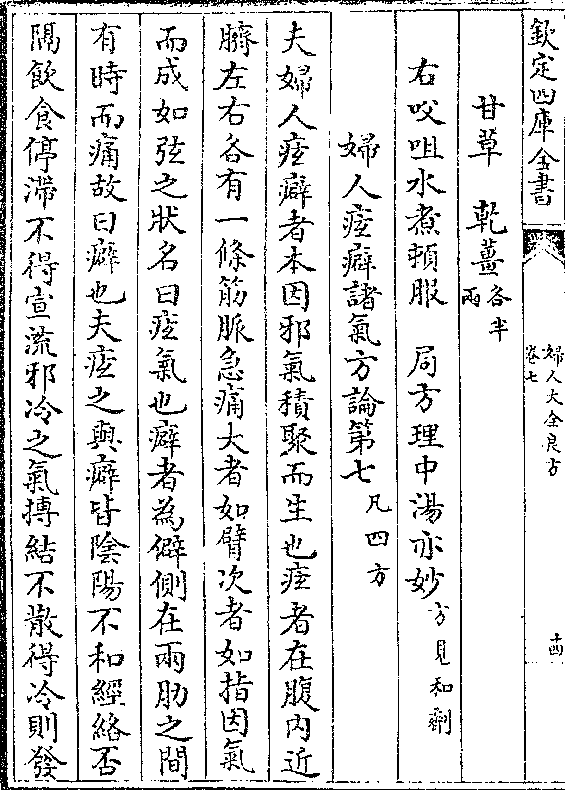 欽定四庫全書
婦人大全良方
卷七
十四
甘草　乾薑各半兩
右㕮咀水煮頓服　局方理中湯亦妙方見和劑
婦人痃癖諸氣方論第七凡四方
夫婦人痃癖者本因邪氣積聚而生也痃者在腹内近
臍左右各有一條筋脈急痛大者如臂次者如指因氣
而成如弦之狀名曰痃氣也癖者為僻側在兩肋之間
有時而痛故曰癖也夫痃之與癖皆陰陽不和經絡否
隔飲食停滯不得宣流邪冷之氣搏結不散得冷則發